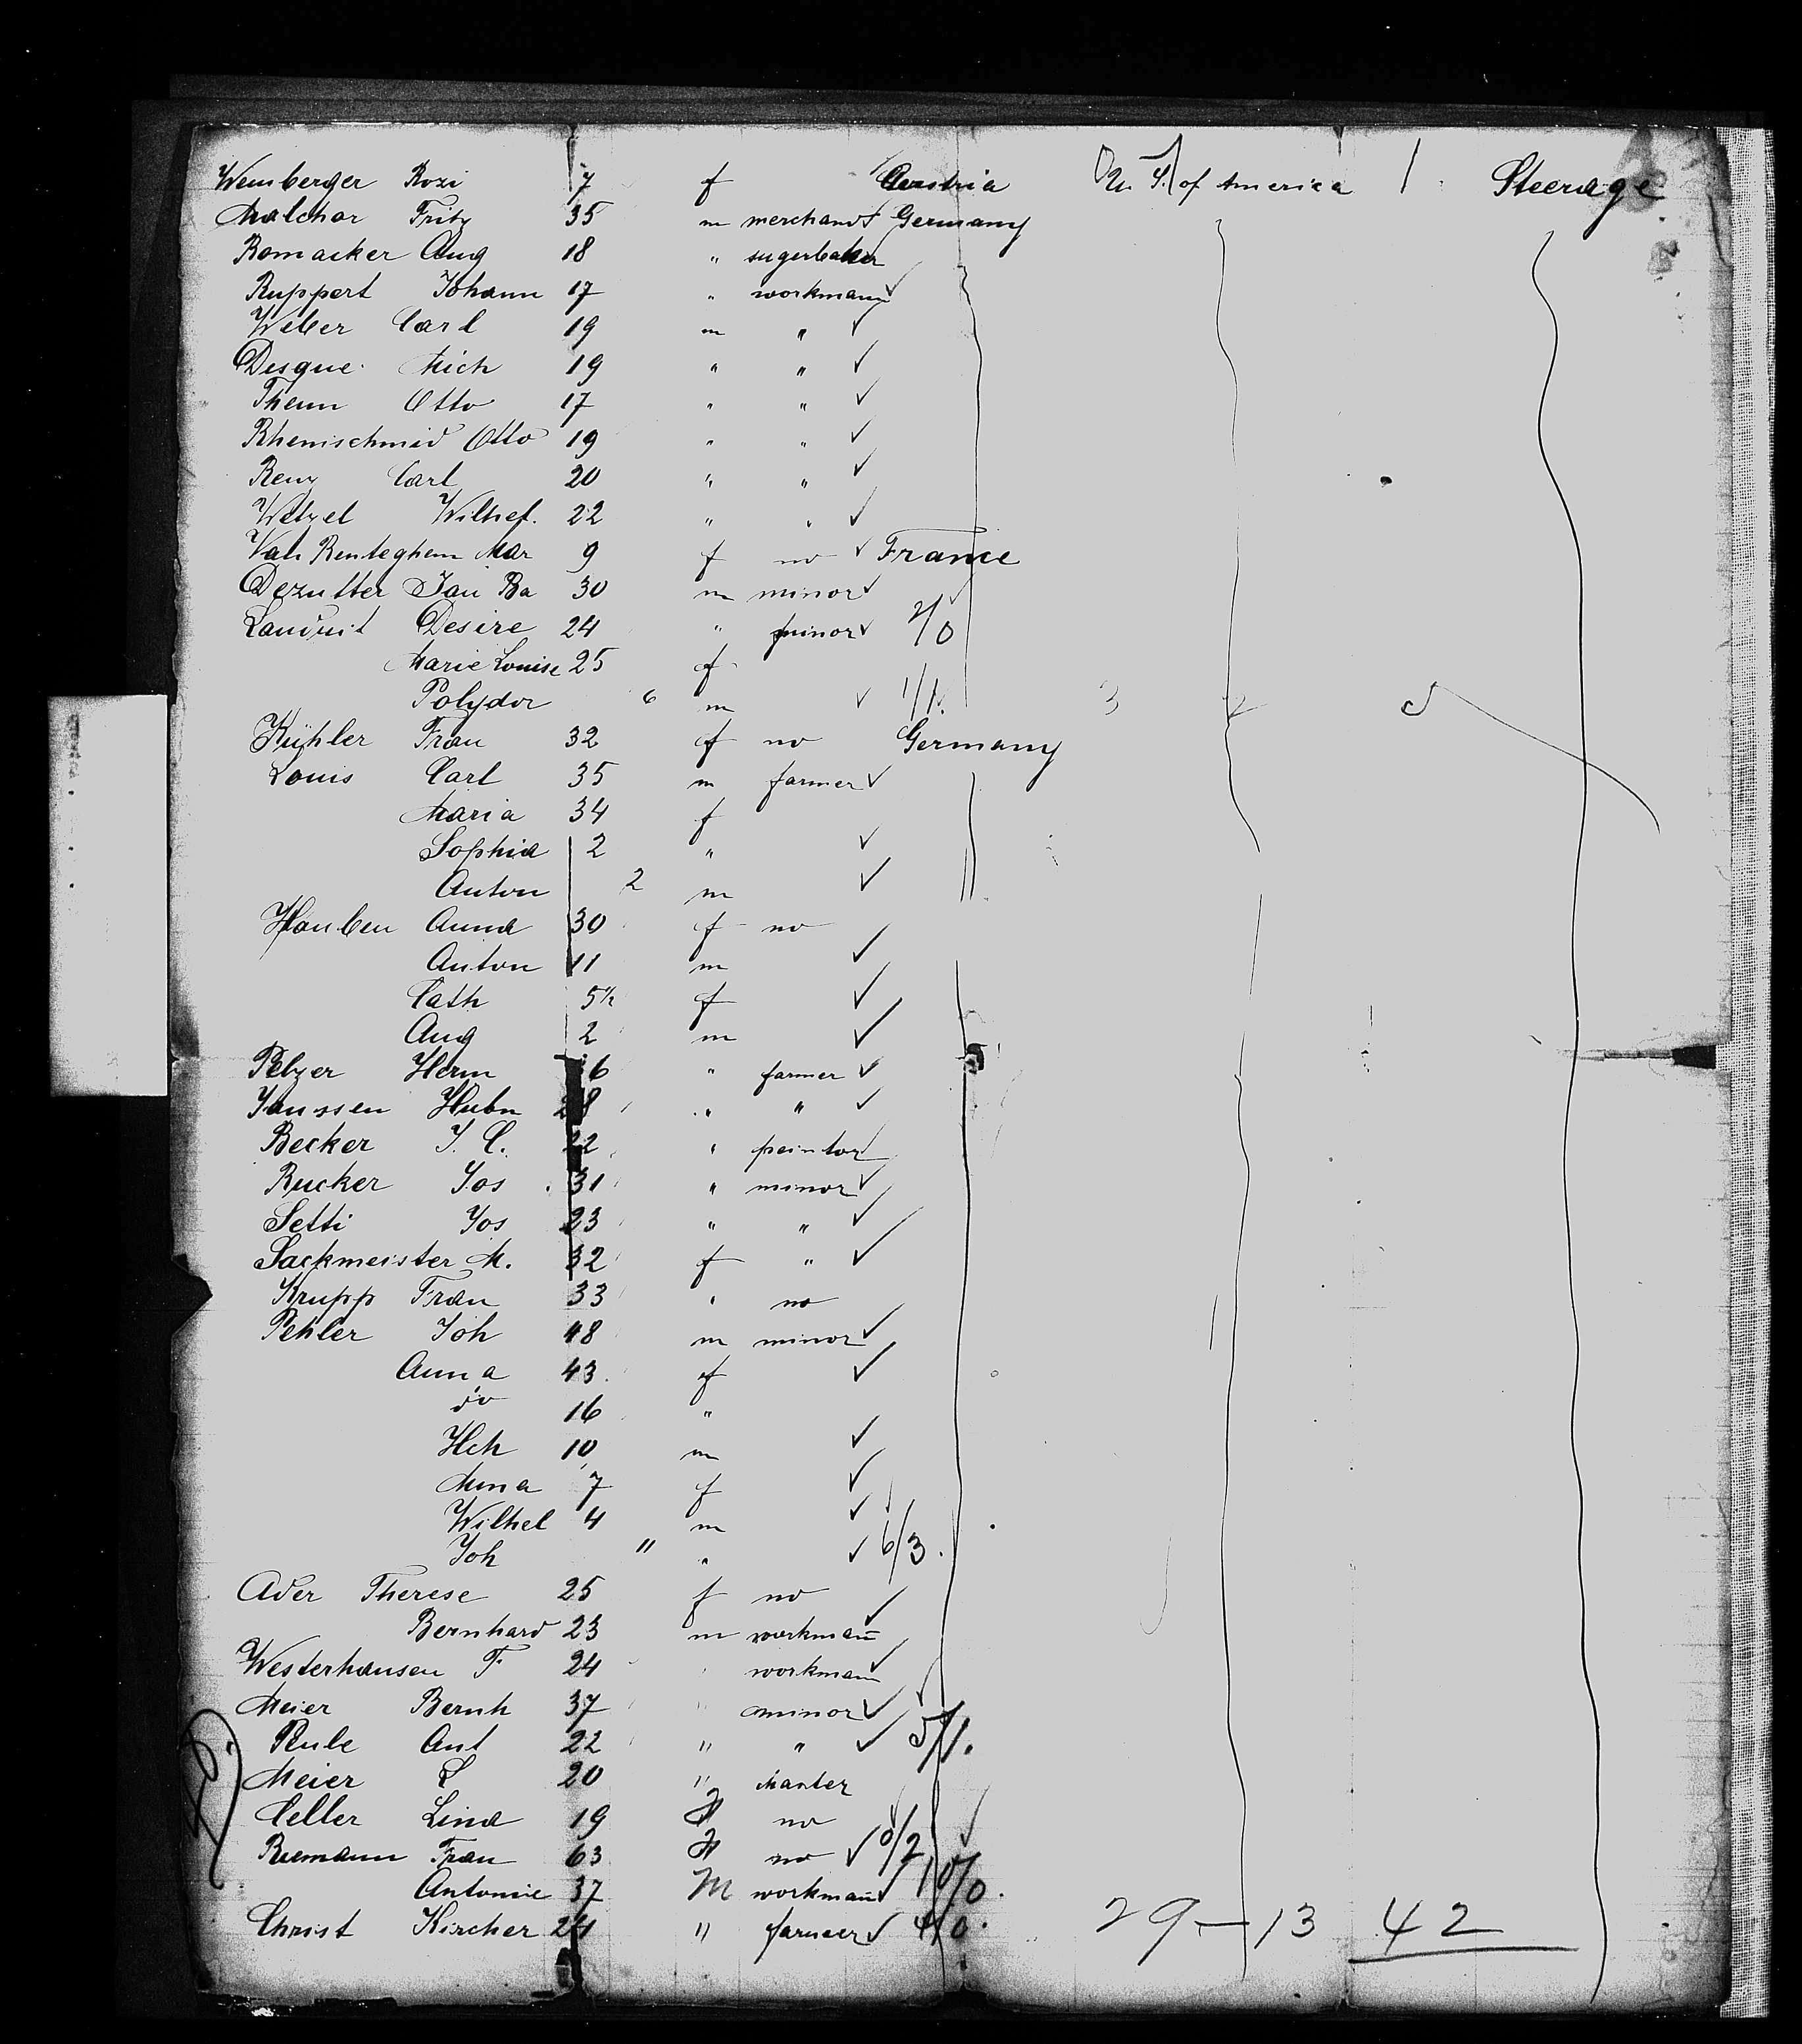 Weinberger Rozi 7 f Austria U. S. of America Steerage
Malchar Fritz 35 m merchant Germany
Romacker Aug 18 " sugerbaker
Ruppert Johann 17 " workmann
Weber Carl 19 m "
Desque Mich 19 " "
Thenn Otto 17 " "
Rhemschmid Otto 19 " "
Renz Carl 20 " "
Wetzel Wilhel. 22 " "
Van Renteghem Mar 9 f no France
Dezutter Jan Ba 30 m minor
Desire 24 " minor 2/0
Marie Louise 25 f
Polydor 6 m 1/1. 3 2 5
Kühler Frau 32 f no Germany
Louis Carl 35 m farmer
Maria 34 f
Sophia 2 "
Anton 2 m
Hauben Anna 30 f no
Anton 11 m
Cath 5½ f
Aug 2 m
Pelzer Herm 16 " farmer
Janssen Hubn 28 " "
Becker J. C. 22 " peintor
Rucker Jos 31 " minor
Setti Jos 23 " "
Sackmeister M. 32 f "
Krupp Frau 33 " no
Pehler Joh 48 m minor
Anna 43 f
do 16 "
Hch 10 m
Anna 7 f
Wilhel 4 m
Joh " " 6/3.
Ader Therese 25 f no
Bernhard 23 m workmann
Westerhausen F. 24 " workmann
Meier Bernh 37 " minor
Peule Ant 22 " " 5/1.
Meier L 20 "
Celler Lina 19 f no
Riemann Frau 63 f no 0/2
Antonie 37 M workmann 10/0.
Christ Kircher 24 " farmer 4/0. 29 — 13 42